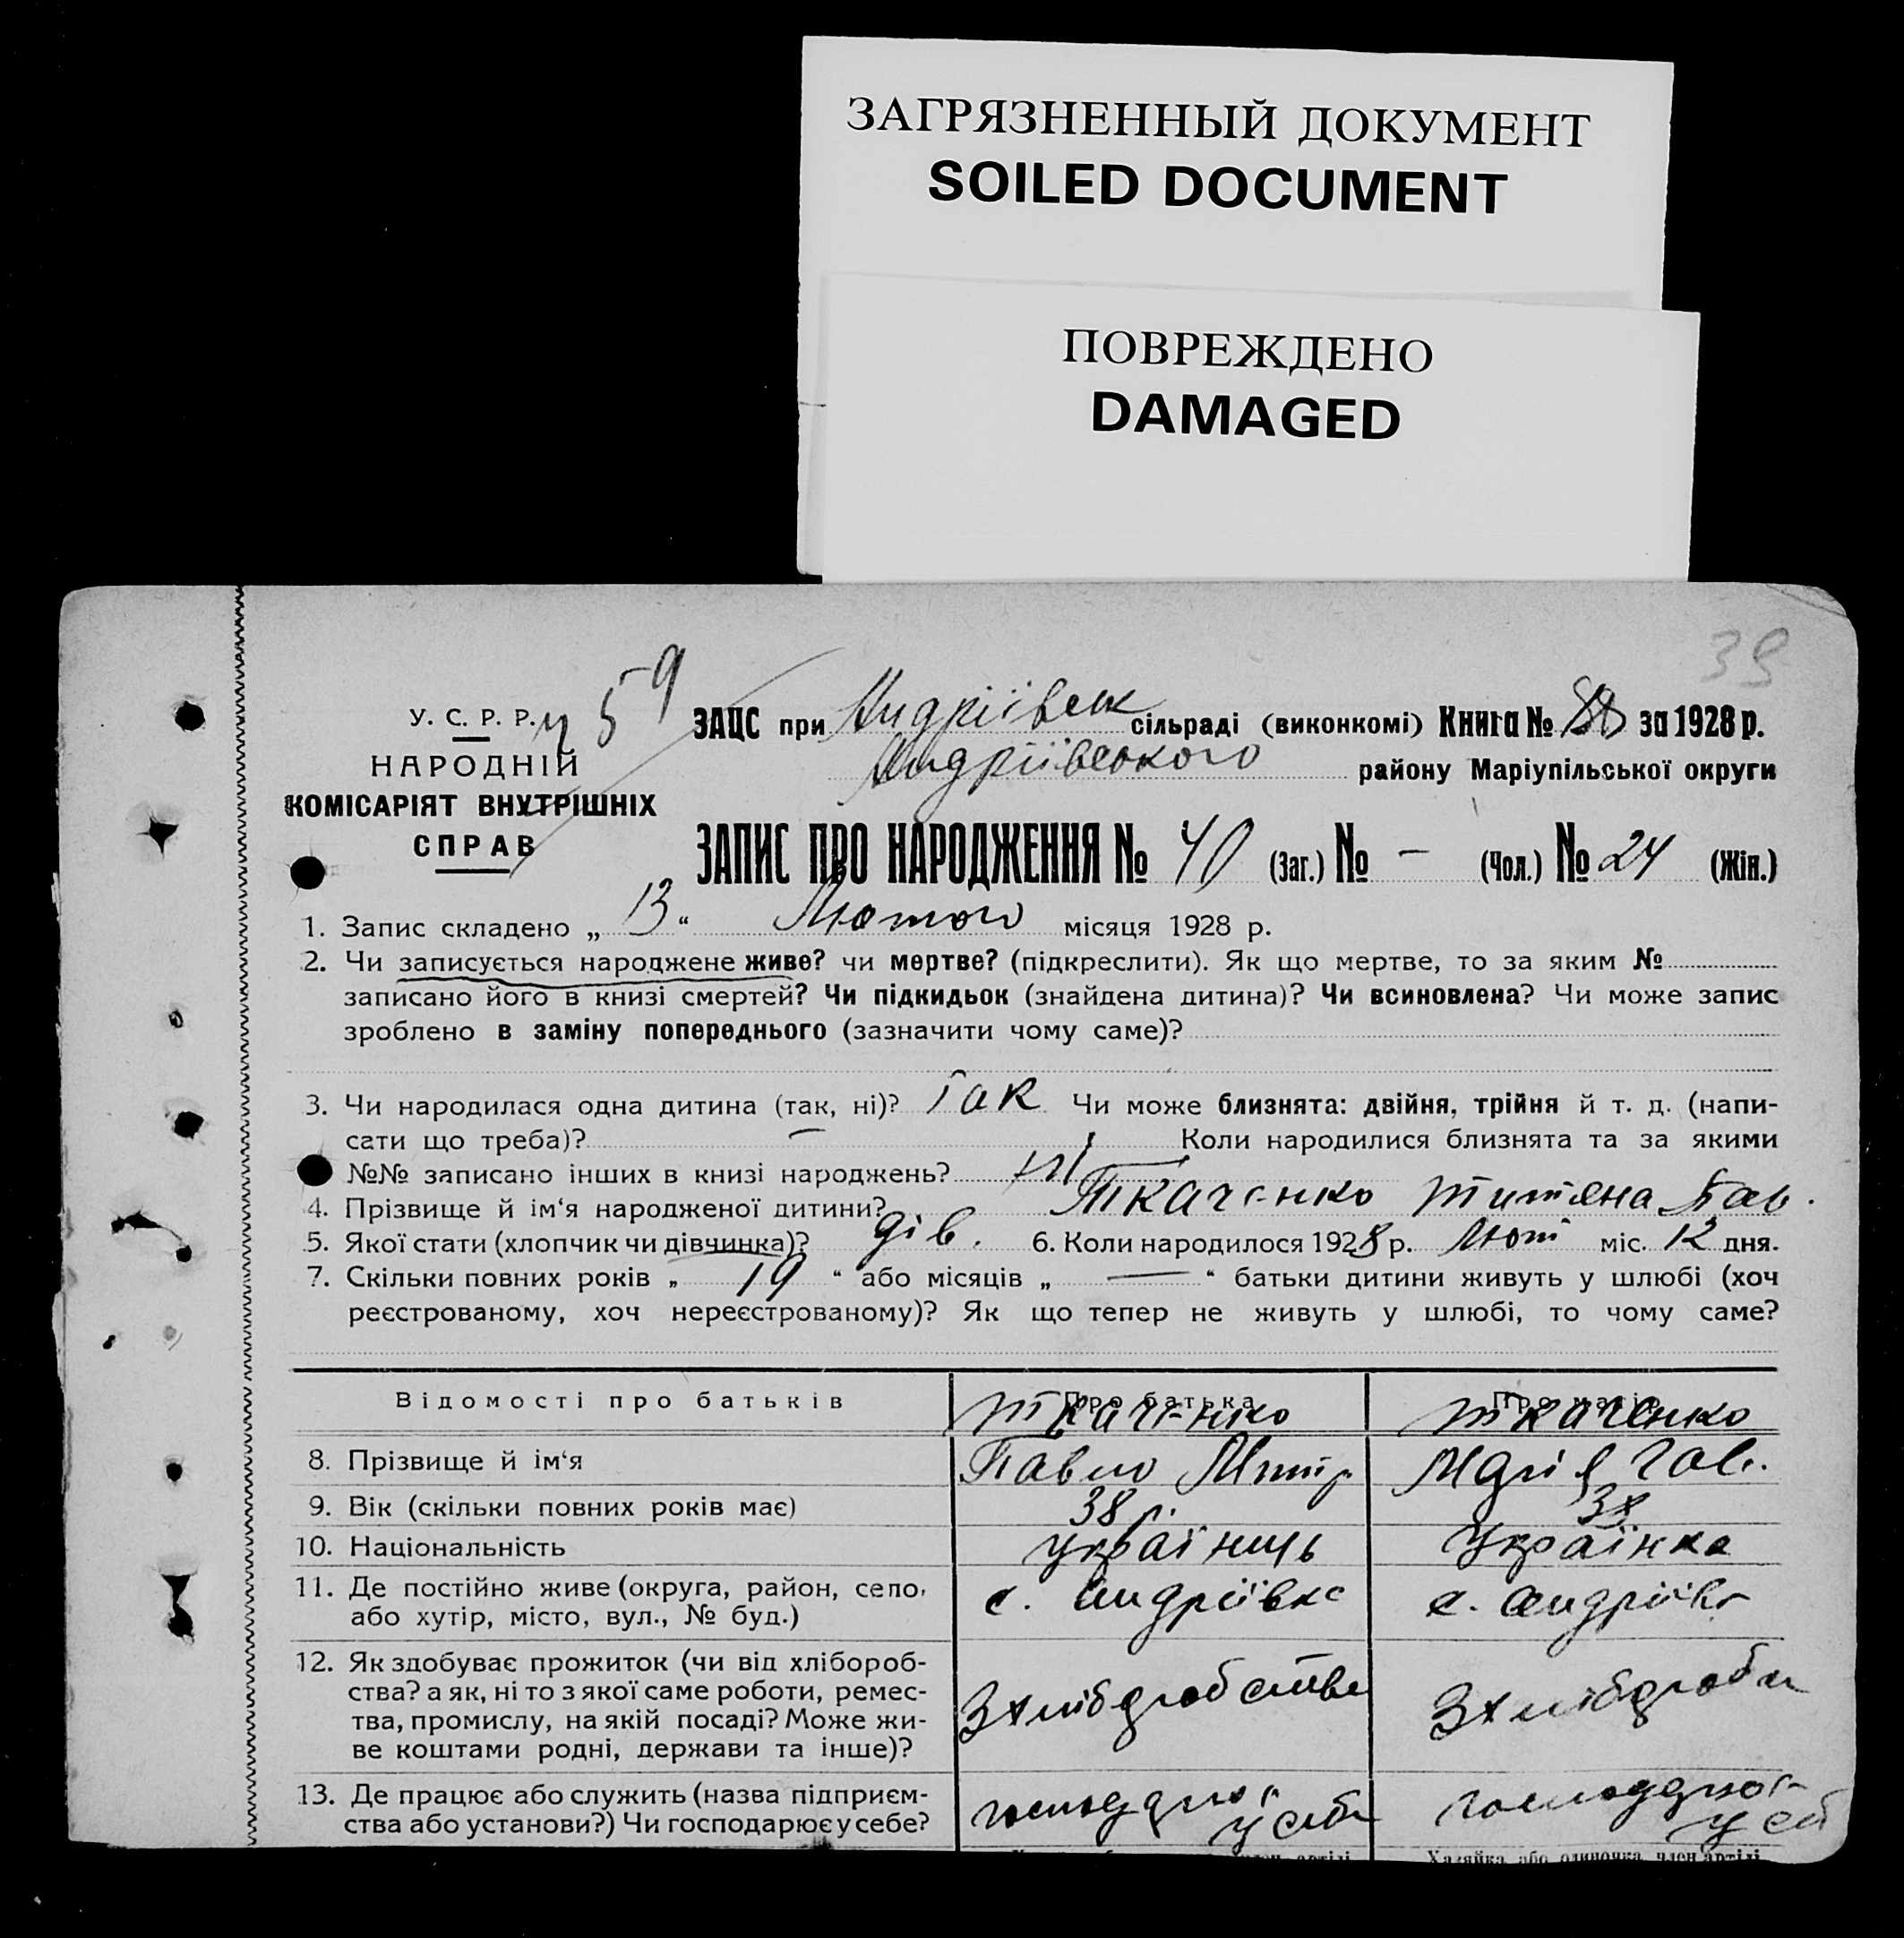 ЗАГРЯЗНЕННЫЙ ДОКУМЕНТ
SOILED DOCUMENT
ПОВРЕЖДЕНО
DAMAGED
39
У. С. Р. Р. 59
НАРОДНІЙ
КОМІСАРІЯТ ВНУТРІШНІХ
СПРАВ
ЗАЦС при Андріївськ сільраді (виконкомі) Книга № за 1928 р.
Андріївського району Маріупільської округи
ЗАПИС ПРО НАРОДЖЕННЯ № 40 (Заг.) № – (Чол.) № 24 (Жін.)
1. Запис складено „ 13 “ Лютого місяця 1928 р.
2. Чи записується народжене живе? чи мертве? (підкреслити). Як що мертве, то за яким №
записано його в книзі смертей? Чи підкидьок (знайдена дитина)? Чи всиновлена? Чи може запис
зроблено в заміну попереднього (зазначити чому саме)?
3. Чи народилася одна дитина (так, ні)? Так Чи може близнята: двійня, трійня й т. д. (напи-
сати що треба)? – Коли народилися близнята та за якими
№№ записано інших в книзі народжень? ні
4. Прізвище й ім‘я народженої дитини? Ткаченко Титяна Пав.
5. Якої стати (хлопчик чи дівчинка)? дів. 6. Коли народилося 1928 р. Лют міс. 12 дня.
7. Скільки повних років „ 19 “ або місяців „ — “ батьки дитини живуть у шлюбі (хоч
реєстрованому, хоч нереєстрованому)? Як що тепер не живуть у шлюбі, то чому саме?
Відомості про батьків Про батька Про матір
Ткаченко Ткаченко
8. Прізвище й ім‘я Павло Митр Марія Гав.
9. Вік (скільки повних років має) 38 р. 38
10. Національність українць Українка
11. Де постійно живе (округа, район, село, с. Андріївка с. Андріївк
або хутір, місто, вул., № буд.)
12. Як здобуває прожиток (чи від хлібороб-
ства? а як, ні то з якої саме роботи, ремес- З хлібдробства З хлібдроби
тва, промислу, на якій посаді? Може жи-
ве коштами родні, держави та інше)?
13. Де працює або служить (назва підприєм-
ства або установи?) Чи господарює у себе? у себе у себ
Хазяйка або одиночка, член артілі